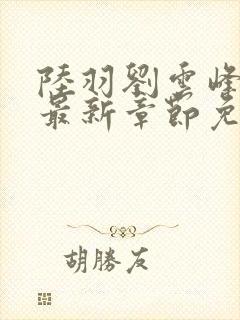 陸羽劉雲峰
最新章節免
胡勝友